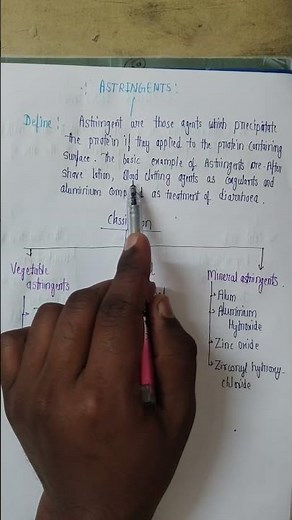 :- ASTRINGENTS :-
Define :- Astringent are those agents which precipitate
the protein if they applied to the protein containing
surface. The basic example of Astringents are After
shave lotion, Blood clotting agents as coagulants and
aluminium as treatment of diarrhoea.
Vegetable
astringents
Mineral astringents
Alum
Aluminium
Hydroxide
Zinc oxide
Zirconyl hydroxy-
chloride